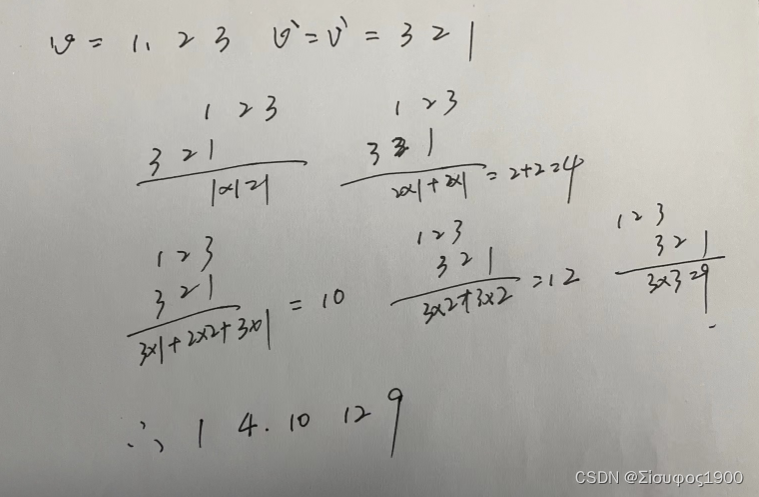 v = 1, 2 3 v` = v` = 3 2 1
1 2 3
3 2 1
1×1=1
1 2 3
3 2 1
2×1+2×1 = 2+2=4
1 2 3
3 2 1
3×1+2×2+3×1 = 10
1 2 3
3 2 1
3×2+3×2 = 12
1 2 3
3 2 1
3×3=9
∴ 1 4. 10 12 9
CSDN @Σίσυφος1900